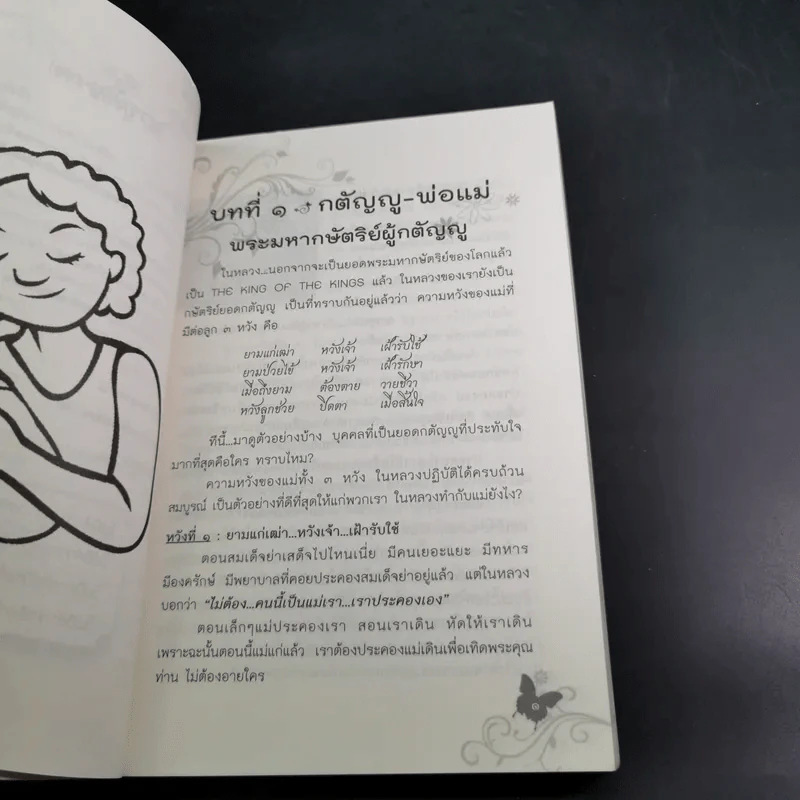 บทที่ ๑ กตัญญู-พ่อแม่
พระมหากษัตริย์ผู้กตัญญู
ในหลวง...นอกจากจะเป็นยอดพระมหากษัตริย์ของโลกแล้ว
เป็น THE KING OF THE KINGS แล้ว ในหลวงของเรายังเป็น
กษัตริย์ยอดกตัญญู เป็นที่ทราบกันอยู่แล้วว่า ความหวังของแม่ที่
มีต่อลูก ๓ หวัง คือ
ยามแก่เฒ่า หวังเจ้า เฝ้ารับใช้
ยามป่วยไข้ หวังเจ้า เฝ้ารักษา
เมื่อถึงยาม ต้องตาย วายชีวา
หวังลูกช่วย ปิดตา เมื่อสิ้นใจ
ทีนี้...มาดูตัวอย่างบ้าง บุคคลที่เป็นยอดกตัญญูที่ประทับใจ
มากที่สุดคือใคร ทราบไหม?
ความหวังของแม่ทั้ง ๓ หวัง ในหลวงปฏิบัติได้ครบถ้วน
สมบูรณ์ เป็นตัวอย่างที่ดีที่สุดให้แก่พวกเรา ในหลวงทำกับแม่ยังไง?
หวังที่ ๑ : ยามแก่เฒ่า...หวังเจ้า...เฝ้ารับใช้
ตอนสมเด็จย่าเสด็จไปไหนเนี่ย มีคนเยอะแยะ มีทหาร
มีองครักษ์ มีพยาบาลที่คอยประคองสมเด็จย่าอยู่แล้ว แต่ในหลวง
บอกว่า “ไม่ต้อง...คนนี้เป็นแม่เรา...เราประคองเอง”
ตอนเล็กๆแม่ประคองเรา สอนเราเดิน หัดให้เราเดิน
เพราะฉะนั้นตอนนี้แม่แก่แล้ว เราต้องประคองแม่เดินเพื่อเทิดพระคุณ
ท่าน ไม่ต้องอายใคร
๑